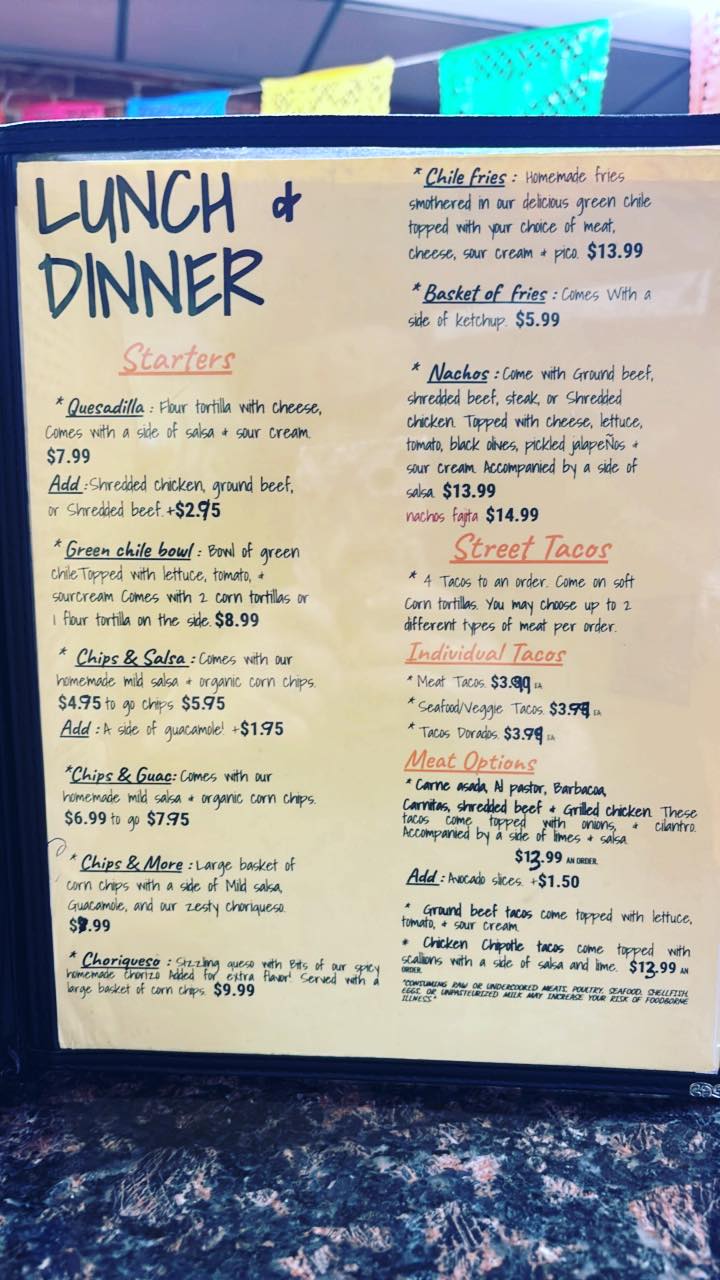 LUNCH &
DINNER
Starters
* Quesadilla : Flour tortilla with cheese,
Comes with a side of salsa + sour cream.
$7.99
Add :Shredded chicken, ground beef,
or Shredded beef.+$2.95
* Green chile bowl : Bowl of green
chileTopped with lettuce, tomato, +
sourcream Comes with 2 corn tortillas or
1 flour tortilla on the side. $8.99
* Chips & Salsa : Comes with our
homemade mild salsa + organic corn chips.
$4.95 to go chips $5.95
Add : A side of guacamole! +$1.95
*Chips & Guac: Comes with our
homemade mild salsa + organic corn chips.
$6.99 to go $7.95
* Chips & More : Large basket of
corn chips with a side of Mild salsa,
Guacamole, and our zesty choriqueso.
.99
* Choriqueso : Sizzling queso with Bits of our spicy
homemade chorizo Added for extra flavor! Served with a
large basket of corn chips. $9.99
* Chile fries : Homemade fries
smothered in our delicious green chile
topped with your choice of meat,
cheese, sour cream + pico. $13.99
* Basket of fries : Comes With a
side of ketchup. $5.99
* Nachos : Come with Ground beef,
shredded beef, steak, or Shredded
chicken. Topped with cheese, lettuce,
tomato, black olives, pickled jalapeÑos +
sour cream. Accompanied by a side of
salsa. $13.99
nachos fajita $14.99
Street Tacos
* 4 Tacos to an order. Come on soft
Corn tortillas. You may choose up to 2
different types of meat per order.
Individual Tacos
* Meat Tacos. $3.99 EA
* Seafood/Veggie Tacos. $3.99 EA
* Tacos Dorados. $3.99 EA
Meat Options
* Carne asada, Al pastor, Barbacoa,
Carnitas, shredded beef & Grilled chicken. These
tacos come topped with onions, + cilantro.
Accompanied by a side of limes + salsa.
$13.99 AN ORDER.
Add : Avocado slices. +$1.50
* Ground beef tacos come topped with lettuce,
tomato, + sour cream.
* Chicken Chipotle tacos come topped with
scallions with a side of salsa and lime. $13.99 AN
ORDER.
"CONSUMING RAW OR UNDERCOOKED MEATS, POULTRY, SEAFOOD, SHELLFISH,
EGGS, OR UNPASTEURIZED MILK MAY INCREASE YOUR RISK OF FOODBORNE
ILLNESS."